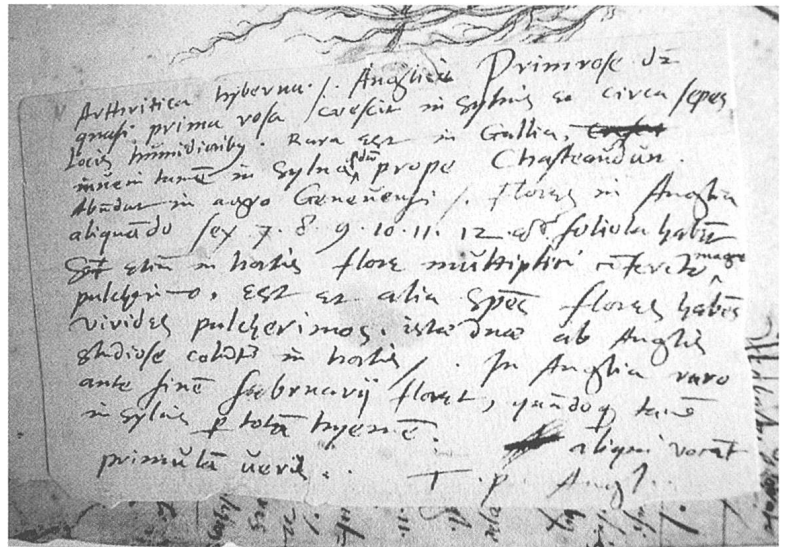 Arthritica hyberna. / . Anglicè Primrose dr̄
quasi prima rosa / crescit in Sylvis et circa sepes
Locis humidiorib9. Rara est in Gallia,
inueni tamē in Sylva prope Chasteaudun.
Abūdat in agro Geneuensi /. flores in Anglia
aliquādo sex 7. 8. 9. 10. 11. 12 foliola habēt
Sūt etiā in hortis flore multiplici magno
pulcherimo. Est et alia spēs flores habēs
virides pulcherimos. istae duae ab Anglis
studiose colūtr in hortis /. In Anglia raro
ante finē februarij floret, quādoq tamē
in sylvis p totā hyemē. aliqui vocāt
primulā ueris . . T. p. Angl.